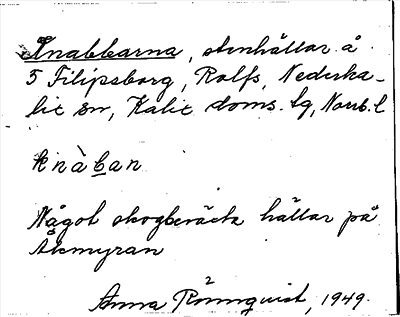 Knabbarna, stenhällar å
5 Filipsborg, Rolfs, Nederka-
lix sn, Kalix doms. lg, Norrb. l
knàban
Något skogbeväxta hällar på
Åkmyran
Anna Rönnquist, 1949.